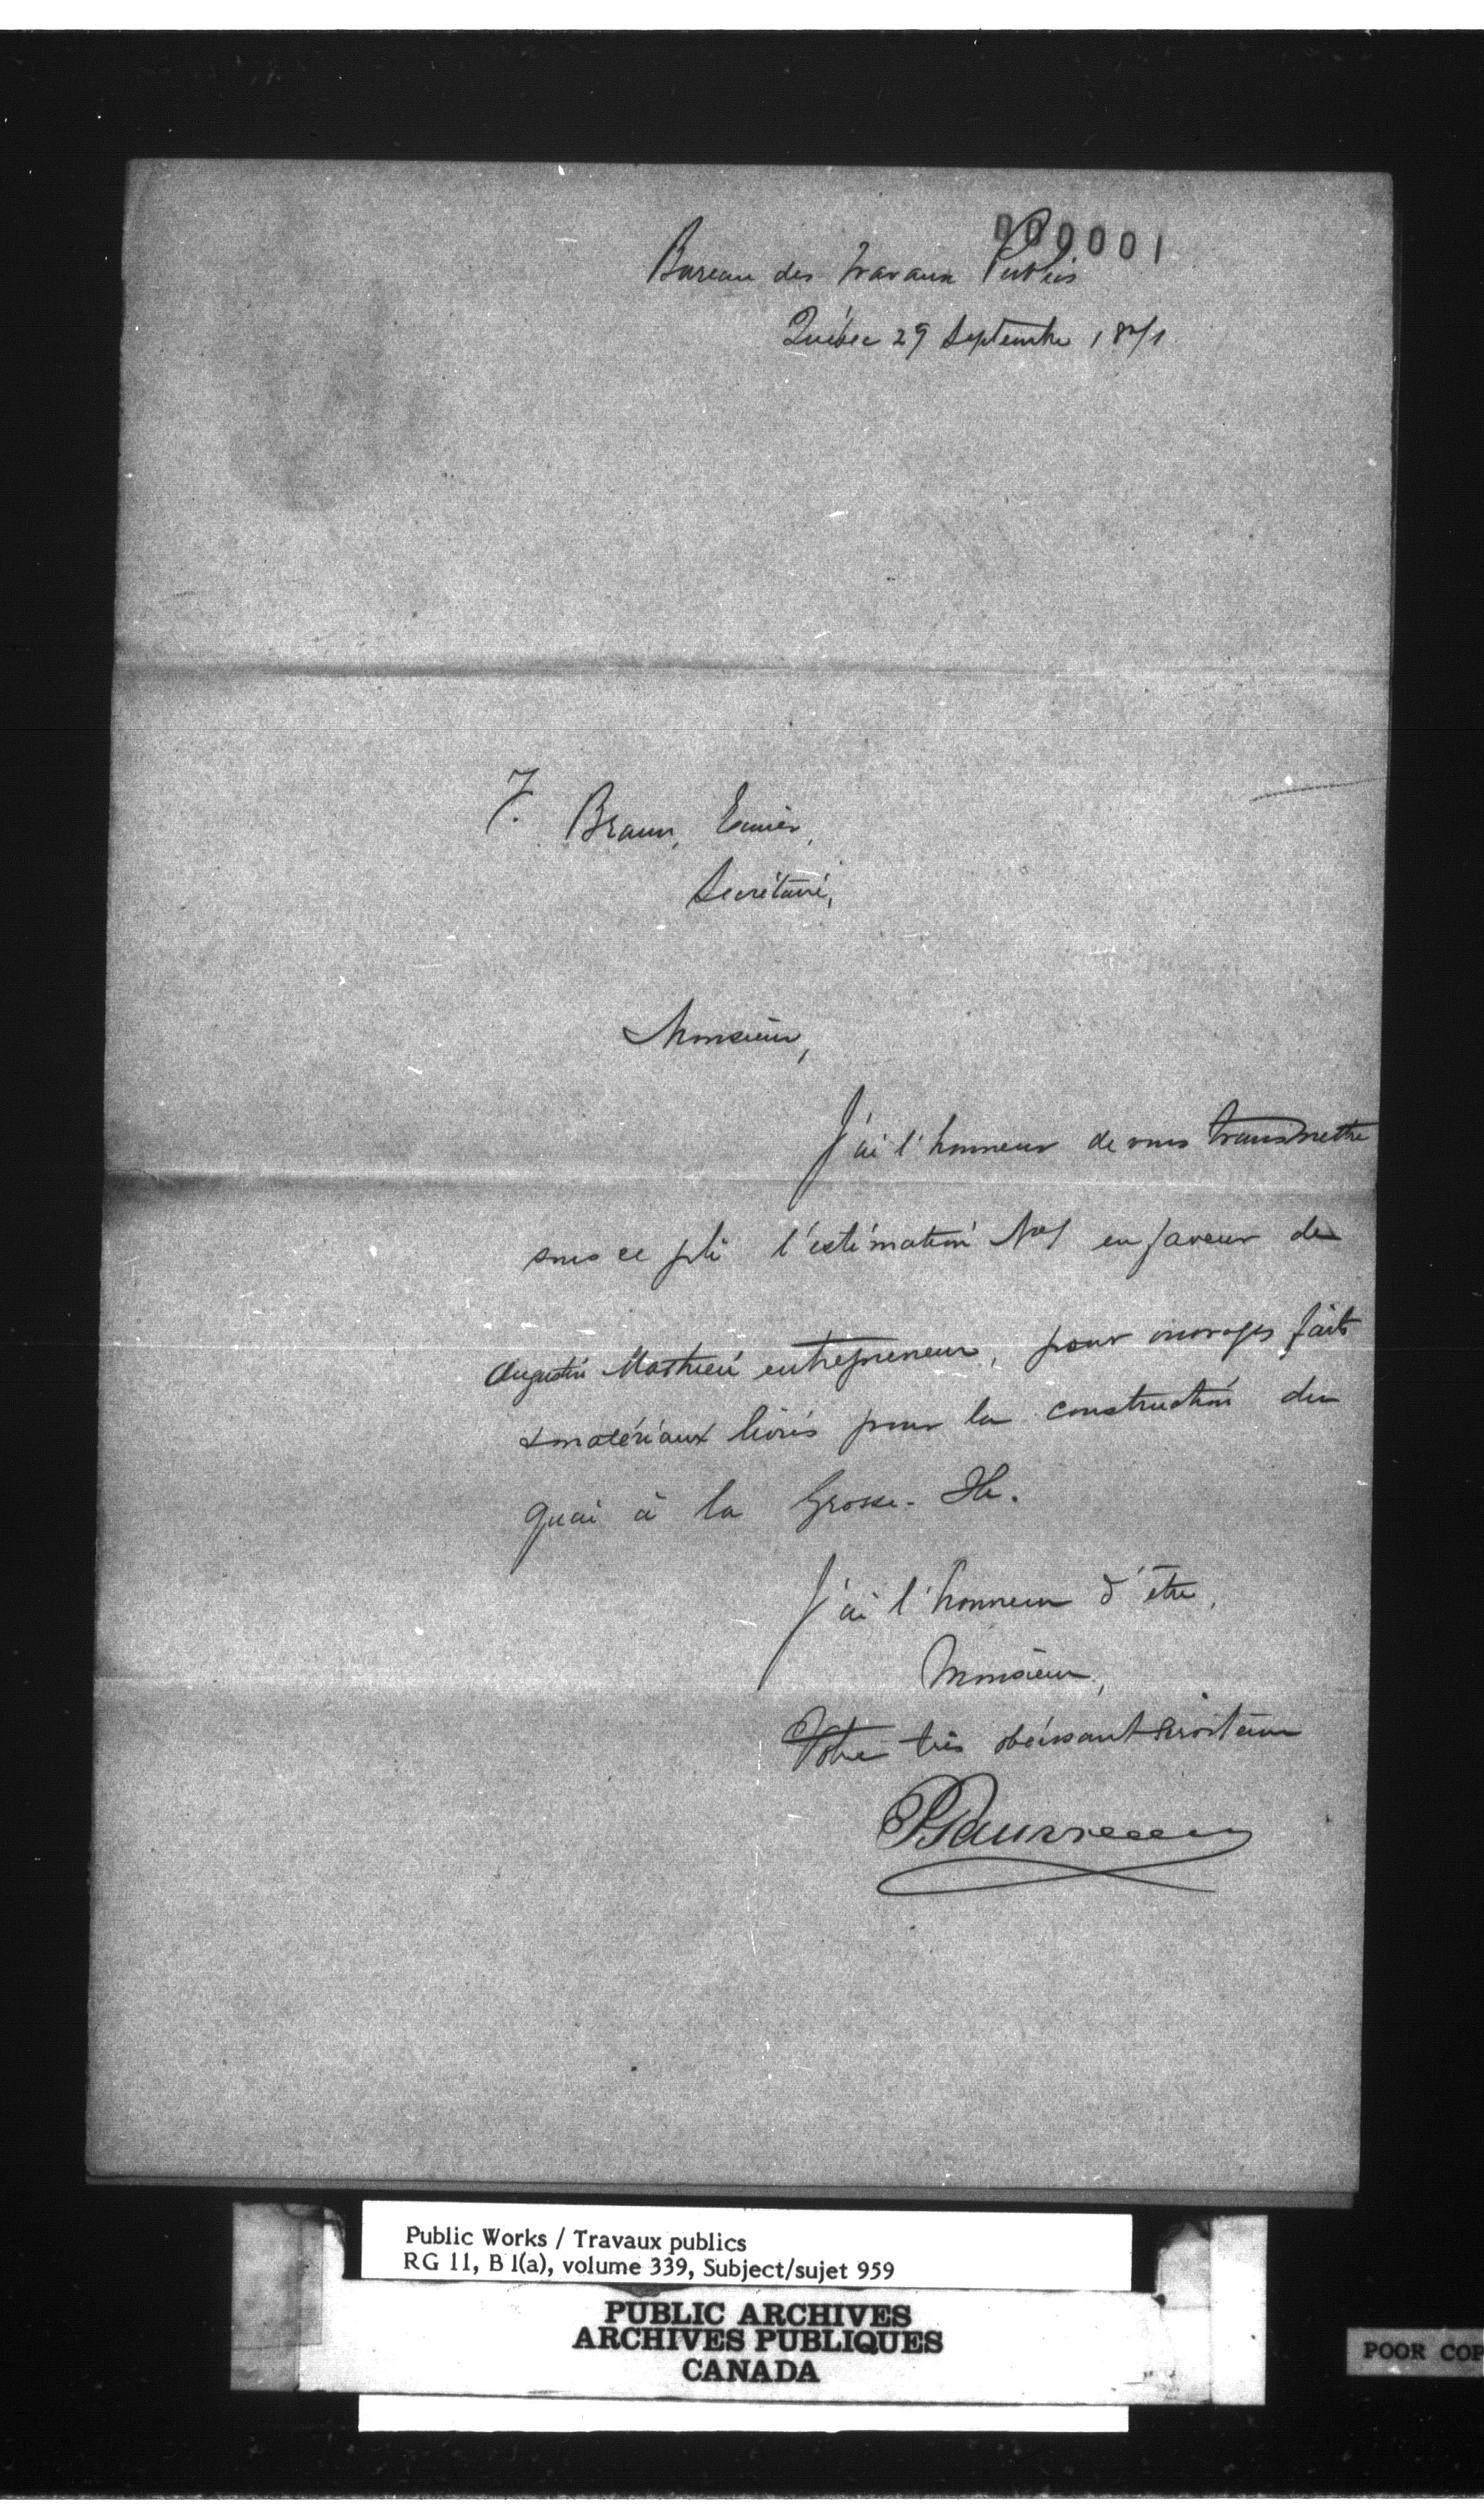 000001
Bureau des Travaux Publics
Québec 29 Septembre 1871
F. Braun, Ecuier,
Secrétaire,
Monsieur,
J'ai l'honneur de vous transmettre
sous ce pli l'estimation No 1 en faveur de
Augustin Mathieu entrepreneur, pour ouvrages faits
& matériaux livrés pour la construction du
quai à la Grosse-Ile.
J'ai l'honneur d'être,
Monsieur,
Votre très obéissant Serviteur
Public Works / Travaux publics
RG 11, B 1(a), volume 339, Subject/sujet 959
PUBLIC ARCHIVES
ARCHIVES PUBLIQUES
CANADA
POOR COP